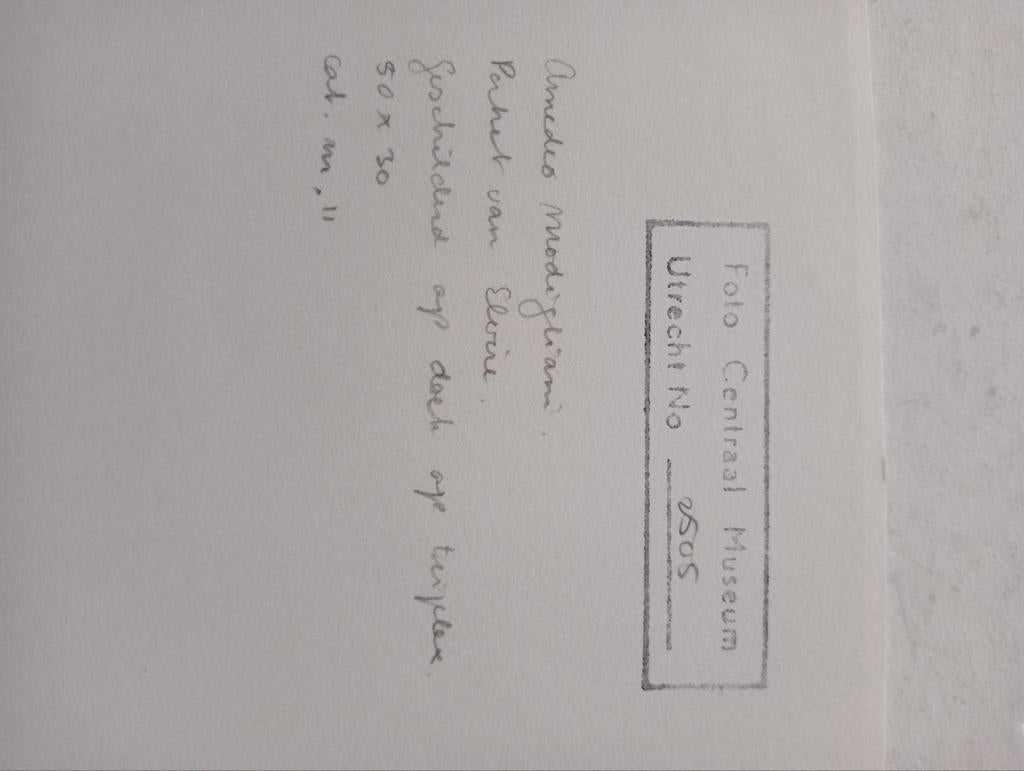 Foto Centraal Museum
Utrecht No 2505
Amedeo Modigliani.
Portret van Elvire.
Geschilderd op doek op triplex.
50 x 30
cat. m. 11